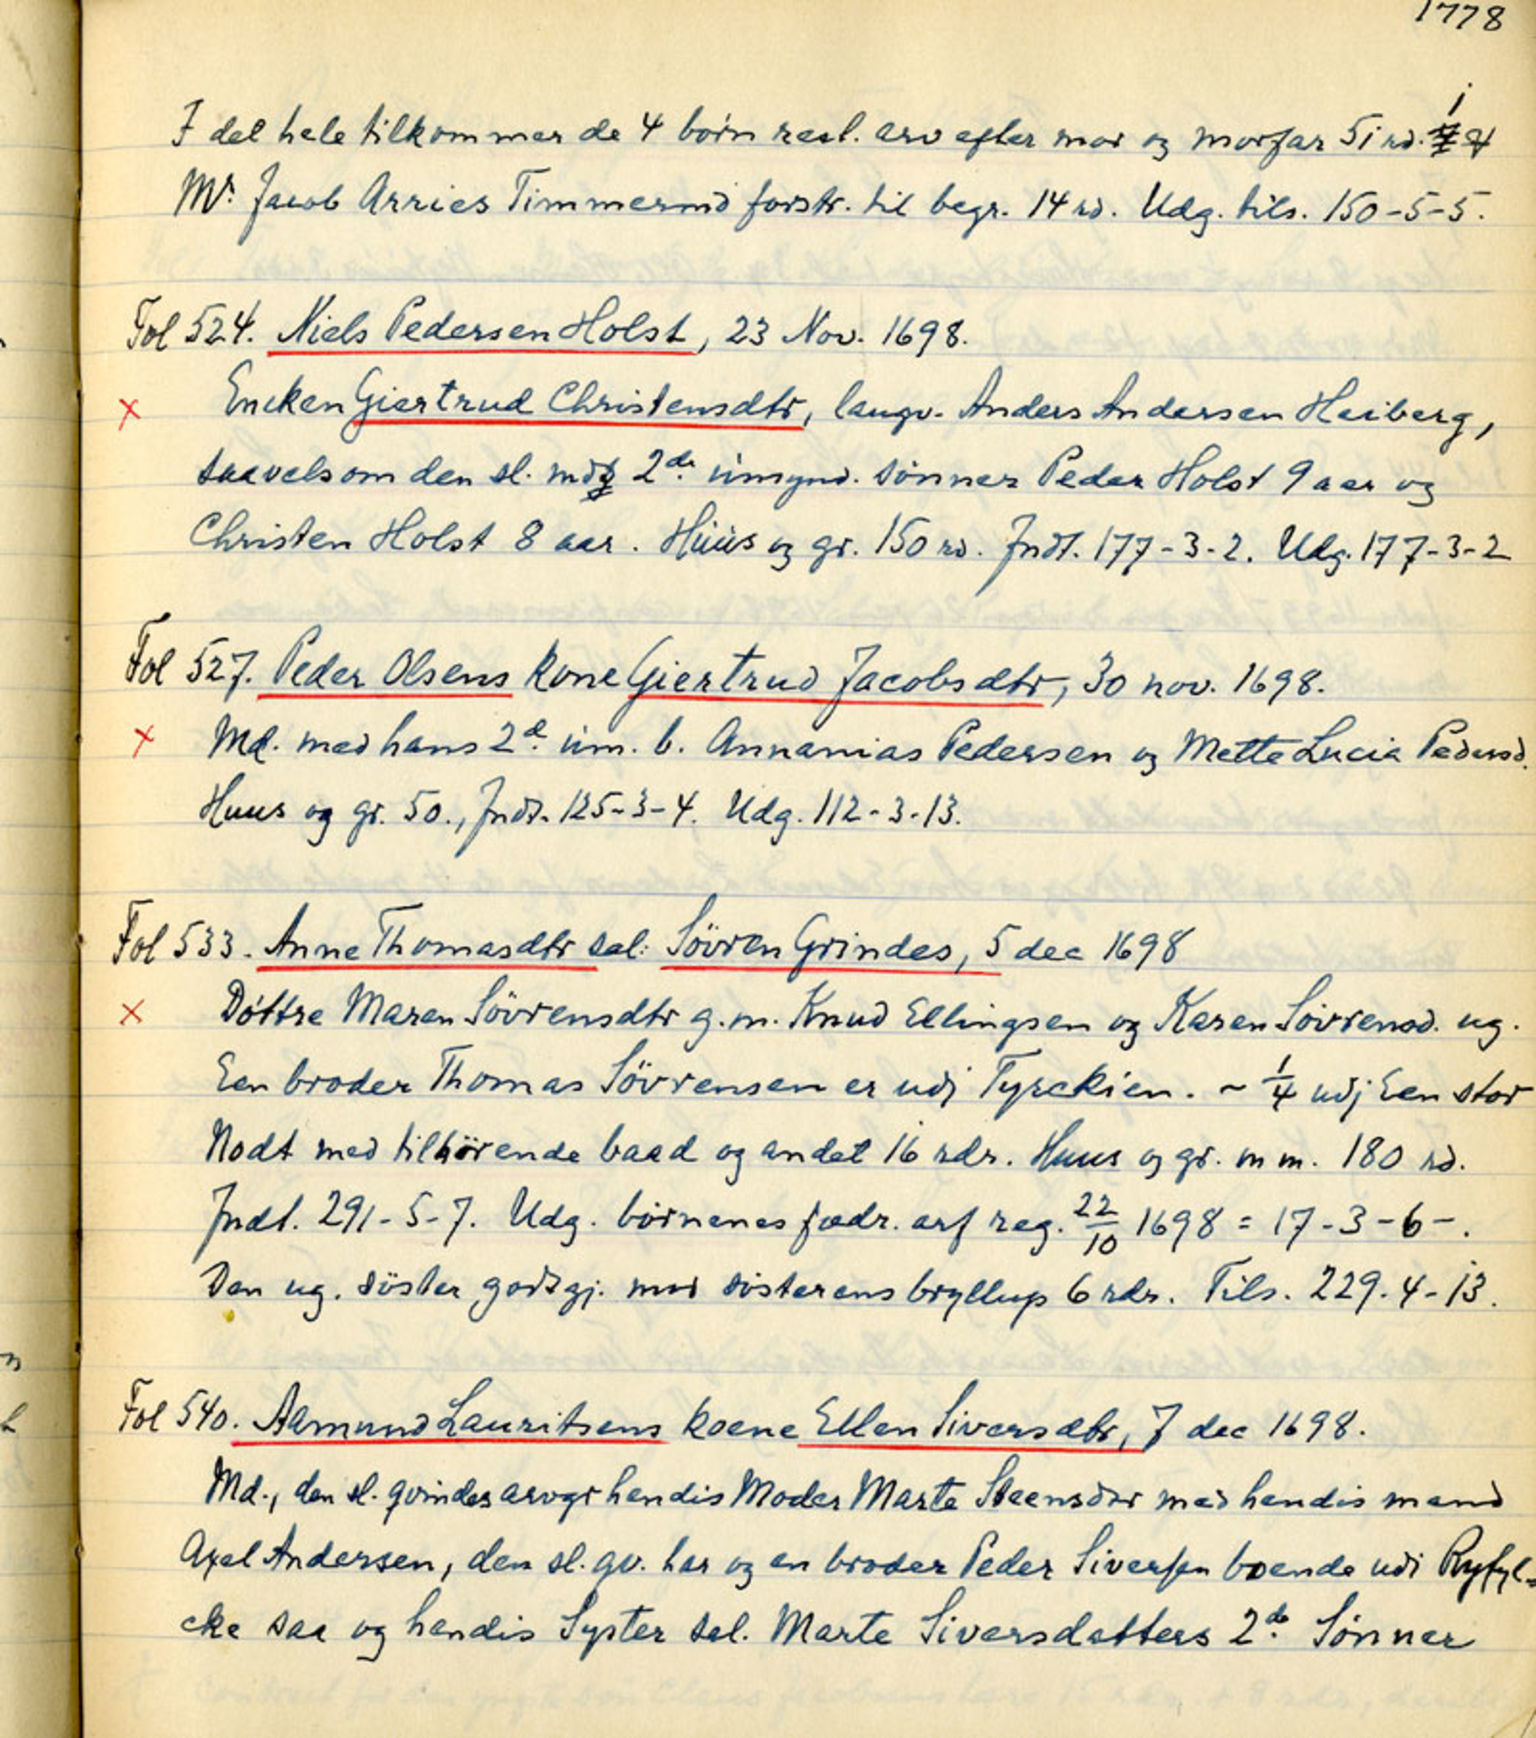 1778
I del hele tilkommer de 4 börn rest. arv efter mor og morfar 51 rd.
Mr. Jacob Arries Timmermd forstr. til begr. 14 rd. Udg. tils. 150-5-5.
Fol 524. Niels Pedersen Holst, 23 Nov. 1698.
Encken Giertrud Christensdtr, laugv. Anders Andersen Heiberg,
saavelsom den sl. mds 2de umynd. sønner Peder Holst 9 aar og
Christen Holst 8 aar. Huus og gr. 150 rd. Indt. 177-3-2. Udg. 177-3-2
Fol 527. Peder Olsens kone Giertrud Jacobsdtr, 30 nov. 1698.
Md. med hans 2de um. b. Annanias Pedersen og Mette Lucia Pedersd.
Huus og gr. 50., Indt. 125-3-4. Udg. 112-3-13.
Fol 533. Anne Thomasdtr sal: Sövren Grindes, 5 dec 1698
Döttre Maren Sövrensdtr g.m. Knud Ellingsen og Karen Sövrensd. ug.
Een broder Thomas Sövrensen er udj Tyrckien. ~ 1/4 udj Een stor
Nodt med tilhörende baad og andet 16 rdr. Huus og gr. m m. 180 rd.
Indt. 291-5-7. Udg. börnenes fædr. arf reg. 22/10 1698 = 17-3-6-.
Den ug. söster godtgj. mod sösterens bryllup 6 rdr. Tils. 229.4-13.
Fol 540. Aamund Lauritsens koene Ellen Siversdtr, 7 dec 1698.
Md., den sl. qvindes arvgr hendis Moder Marte Steensdtr med hendis mand
Axel Andersen, den sl. qv. har og en broder Peder Siversen boende udi Ryfyl=
cke saa og hendis Syster sal. Marte Siversdatters 2de Sønner